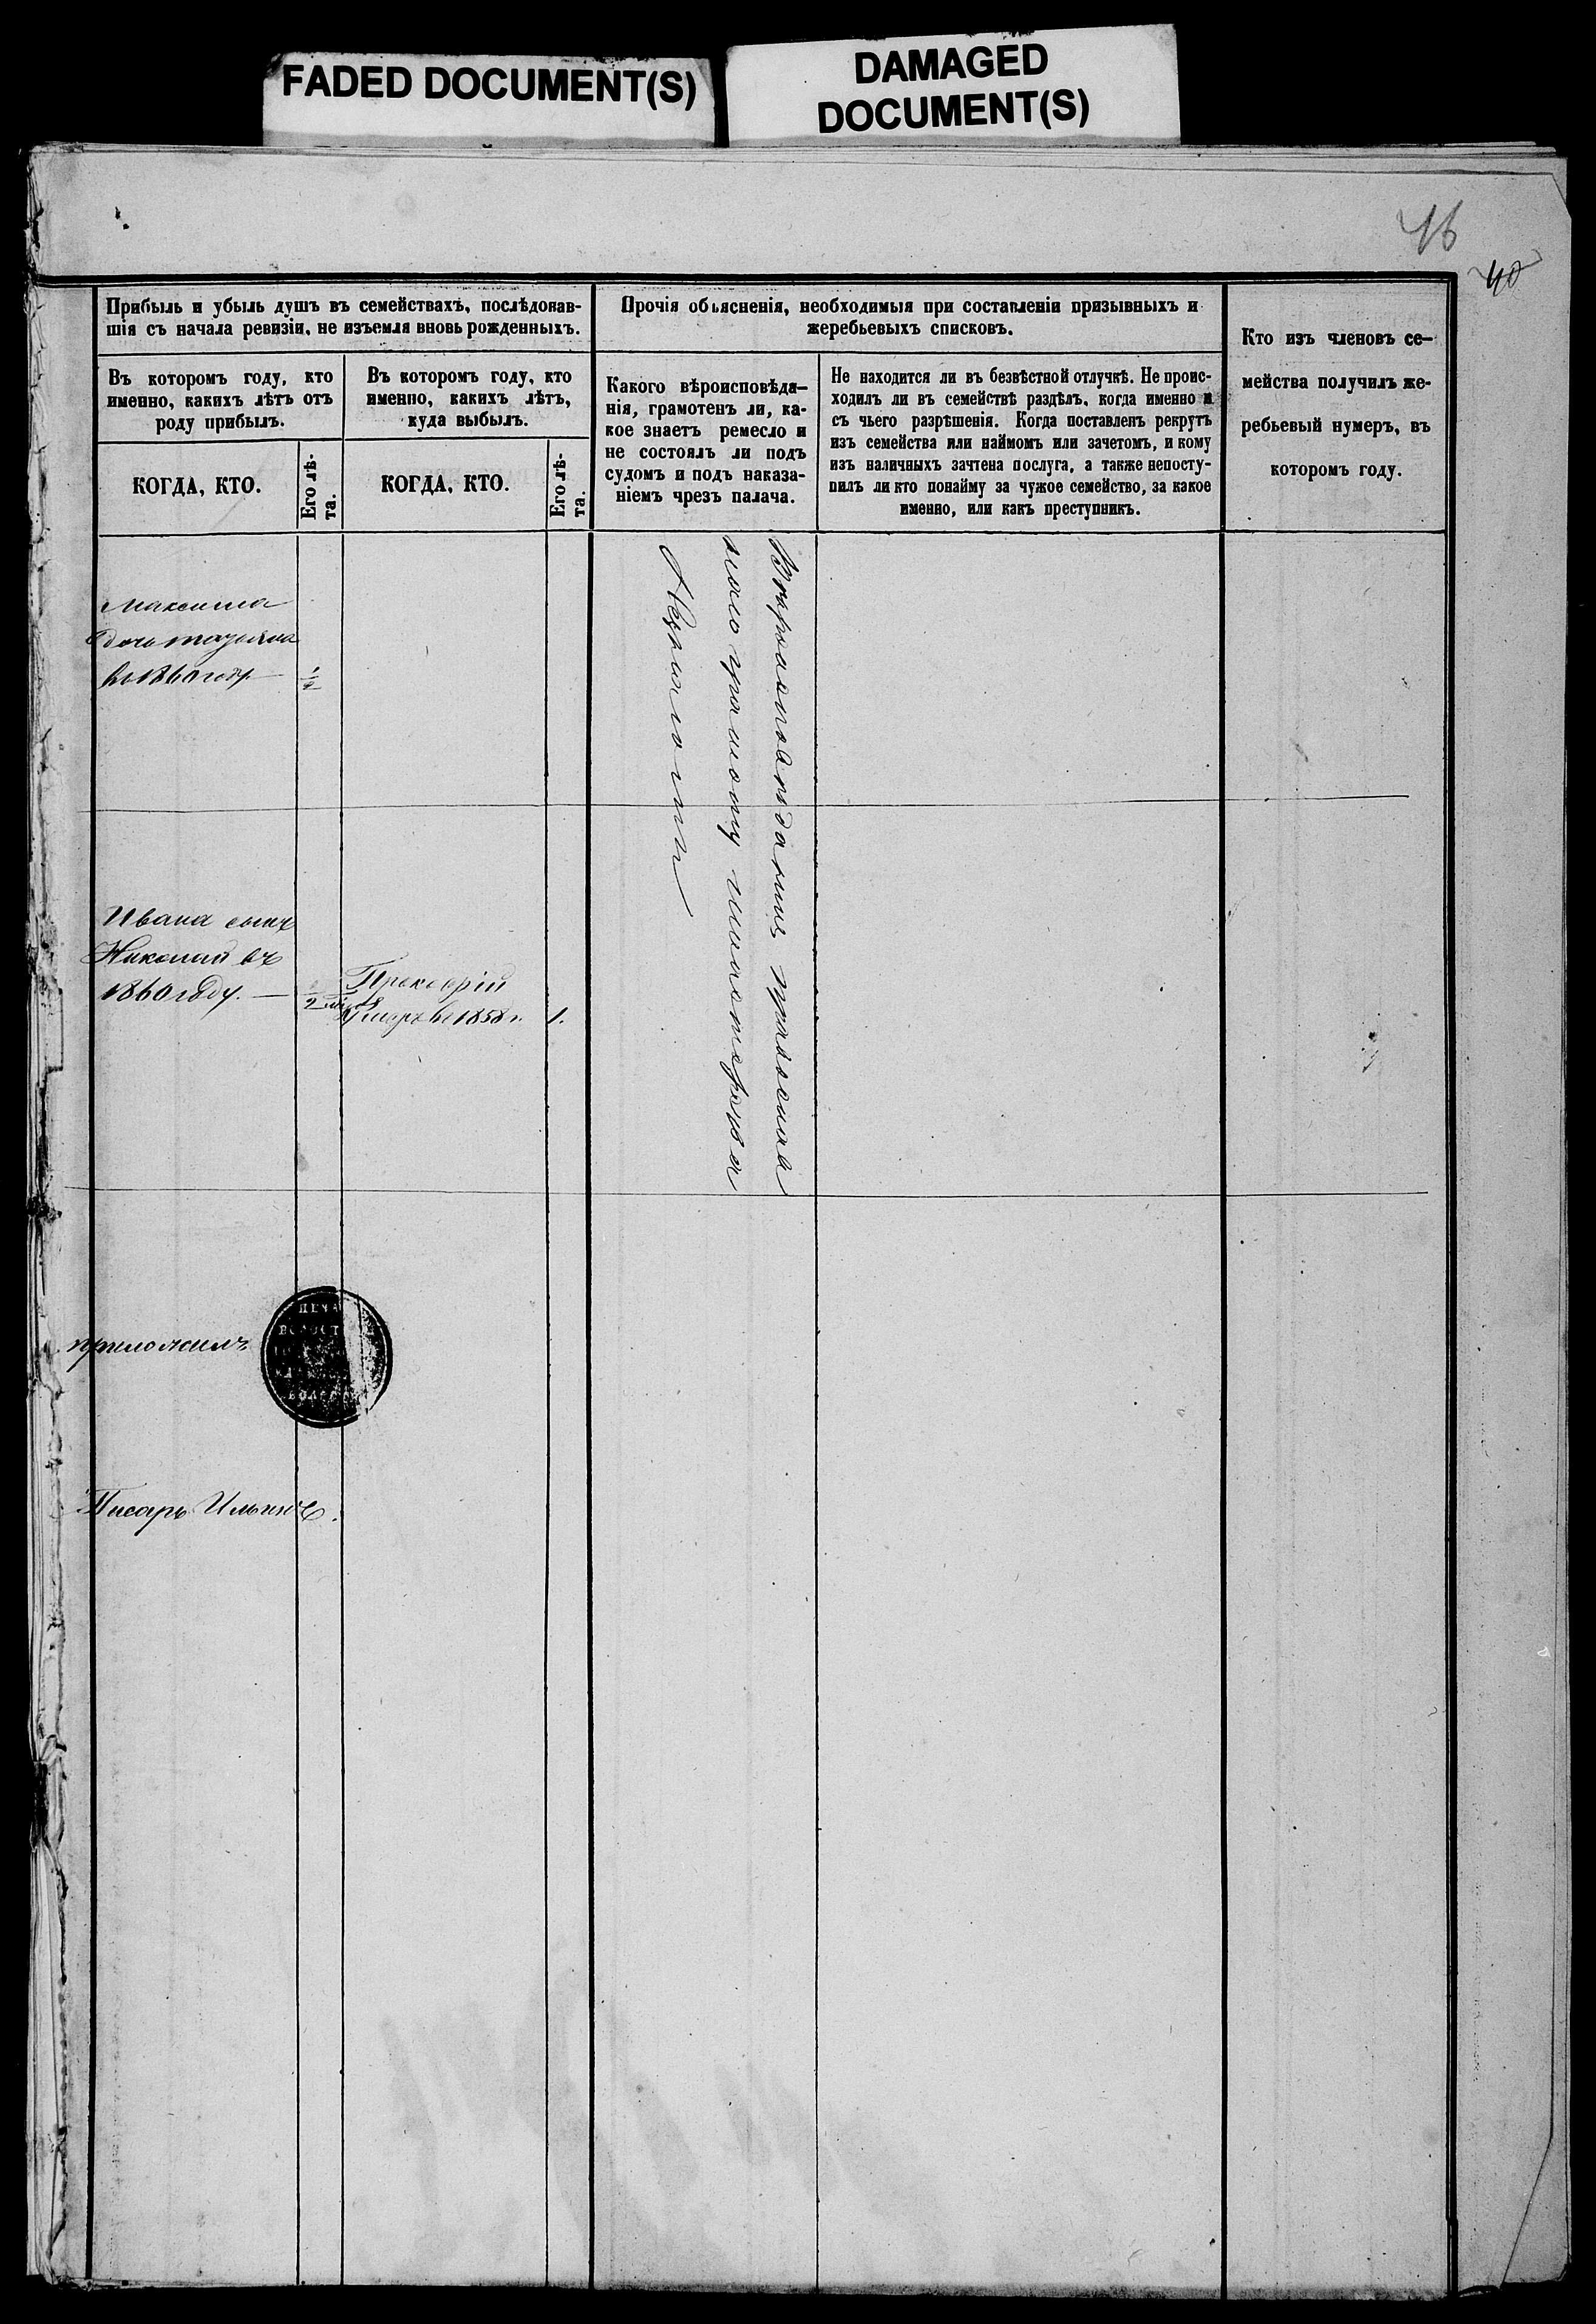 FADED DOCUMENT(S)
DAMAGED
DOCUMENT(S)
46
40
Прибыль и убыль душъ въ семействахъ, послѣдовав-
шія съ начала ревизіи, не изъемля вновь рожденныхъ.
Прочія объясненія, необходимыя при составленіи призывныхъ и
жеребьевыхъ списковъ.
Кто изъ членовъ се-
мейства получилъ же-
ребьевый нумеръ, въ
которомъ году.
Въ которомъ году, кто
именно, какихъ лѣтъ отъ
роду прибылъ.
Въ которомъ году, кто
именно, какихъ лѣтъ,
куда выбылъ.
Какого вѣроисповѣда-
нія, грамотенъ ли, ка-
кое знаетъ ремесло и
не состоялъ ли подъ
судомъ и подъ наказа-
ніемъ чрезъ палача.
Не находится ли въ безвѣстной отлучкѣ. Не проис-
ходилъ ли въ семействѣ раздѣлъ, когда именно и
съ чьего разрѣшенія. Когда поставленъ рекрутъ
изъ семейства или наймомъ или зачетомъ, и кому
изъ наличныхъ зачтена послуга, а также непосту-
пилъ ли кто понайму за чужое семейство, за какое
именно, или какъ преступникъ.
КОГДА, КТО.
Его лѣ-
та.
КОГДА, КТО.
Его лѣ-
та.
Максима
дочь
въ 1860 году
Ивана сынъ
Николай въ
1860 году.
Прокофій
умеръ въ 1858 г.
1.
Вѣроисповѣданія православ
наго грамоту
приложилъ
ПЕЧА
Писарь